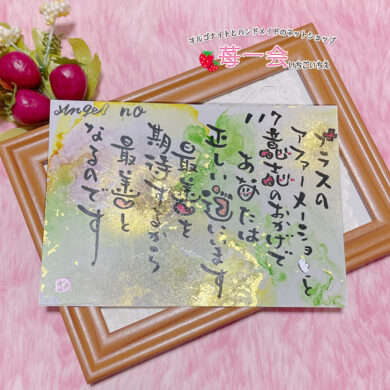 オルゴナイトとハンドメイドのネットショップ
苺一会
いちごいちえ
Angel no
プラスの
アファーメーションと
意志のおかげで
あなたは
正しい道にいます
最善を
期待するから
最善と
なるのです